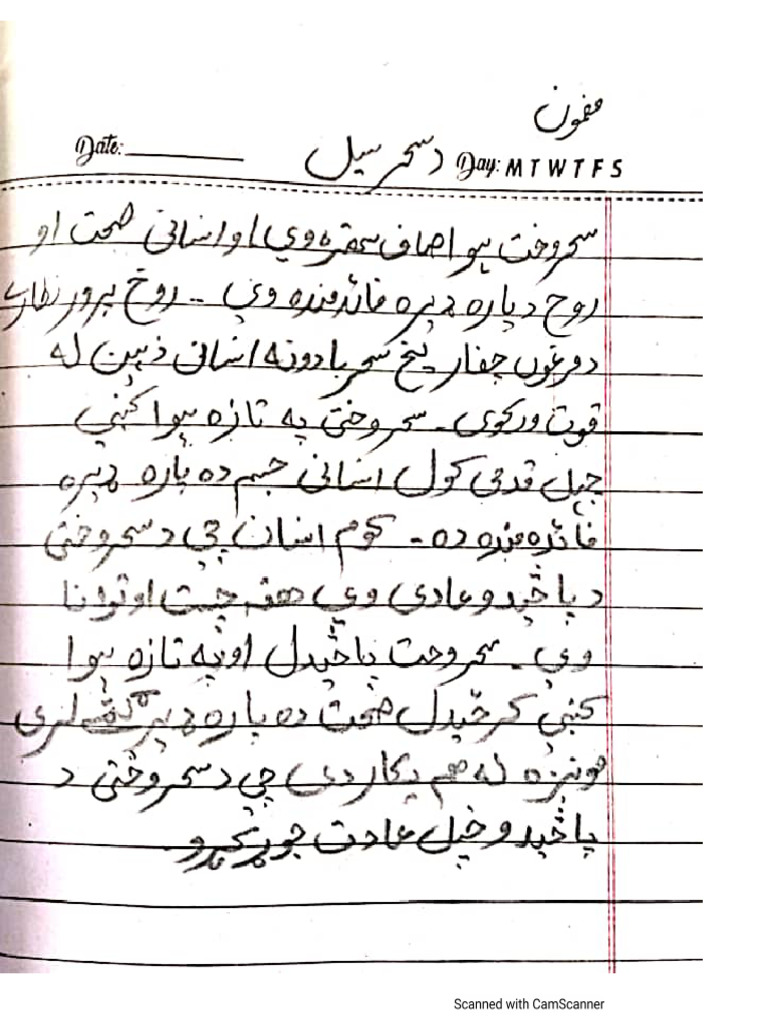 مضمون
Date: ________ د سحر سیل Day: M T W T F S
سحر وخت ہوا صاف ستھره وي او انسانی صحت او
روح د پاره ډیره فائدمنده وي ـ روح پرور نظارے
د مرغوں چغار یخ سحر بادونه انسانی ذہین له
قوت ورکوی ـ سحر وختی په تازه ہوا کښې
چہل قدمی کول انسانی جسم ده پاره ډیره
فائده منده ده ـ کوم انسان چې د سحر وختی
د پاڅیدو عادی وي هغه چست او توانا
وي ـ سحر وخت پاڅیدل او په تازه ہوا
کښې ګرځیدل صحت ده پاره ډیر ګټے لری
مونږه له هم پکار دی چې د سحر وختی د
پاڅیدو خپل عادت جوړ کړو
Scanned with CamScanner